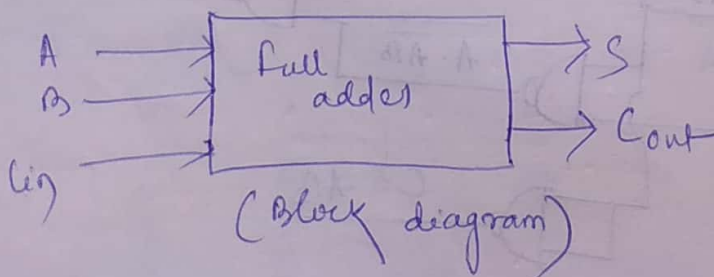 A
B
Cin
full
adder
S
Cout
(Block diagram)